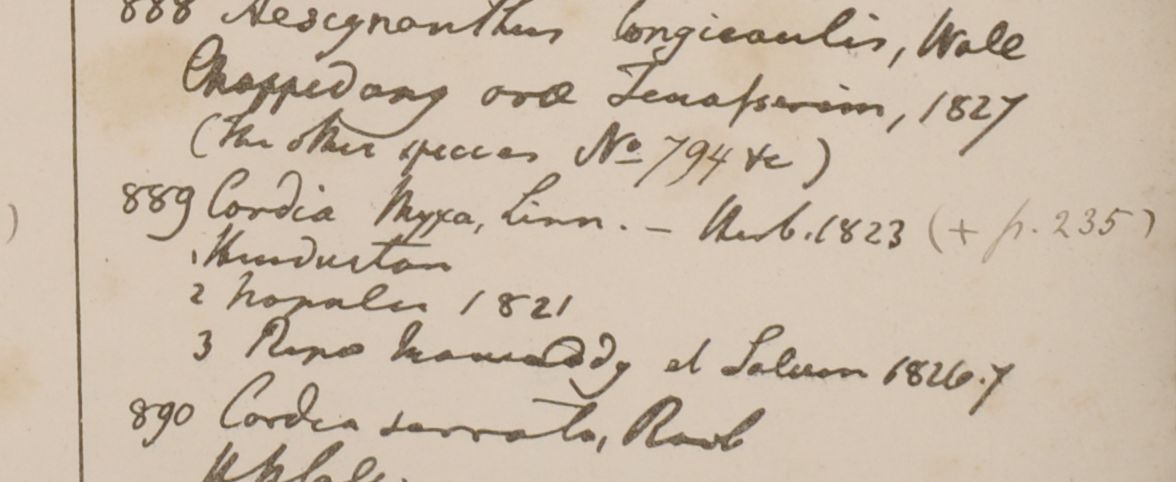 888 Aescynanthus longicaulis, Wall
Chappedong oræ Tenasserim, 1827
(The other species No 794 &c)
889 Cordia Myxa, Linn. – Herb. 1823 (+ p. 235)
1 Hindustan
2 Napalia 1821
3 Ripæ Irawaddy et Saluen 1826.7
890 Cordia serrata, Roxb